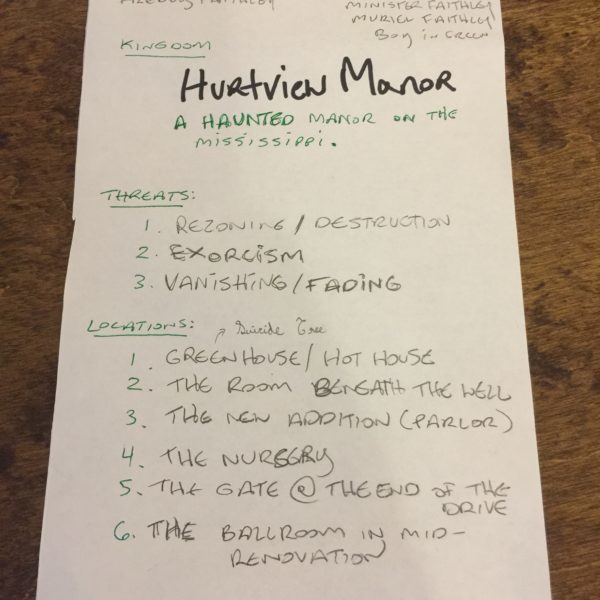 FAITHLEY
MINISTER FAITHLEY
MURIEL FAITHLEY
Boy in GREEN
KINGDOM
HURTVIEW MANOR
A HAUNTED MANOR ON THE
MISSISSIPPI.
THREATS:
1. REZONING / DESTRUCTION
2. EXORCISM
3. VANISHING / FADING
LOCATIONS:
Suicide Tree
1. GREENHOUSE / HOT HOUSE
2. THE ROOM BENEATH THE WELL
3. THE NEW ADDITION (PARLOR)
4. THE NURSERY
5. THE GATE @ THE END OF THE
DRIVE
6. THE BALLROOM IN MID-
RENOVATION